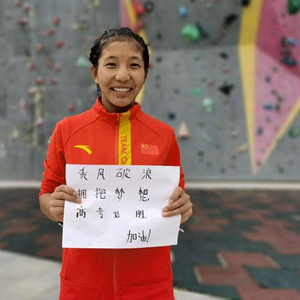 乘风破浪
拥抱梦想
高考必胜
加油!
TEAM C